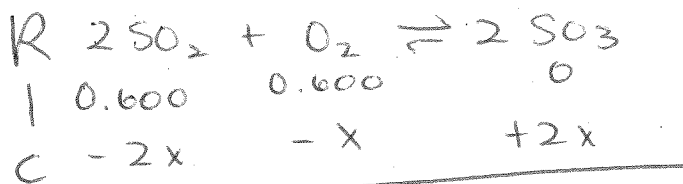 R 2 SO₂ + O₂ ⇌ 2 SO₃
I 0.600 0.600 0
C - 2x - x + 2x